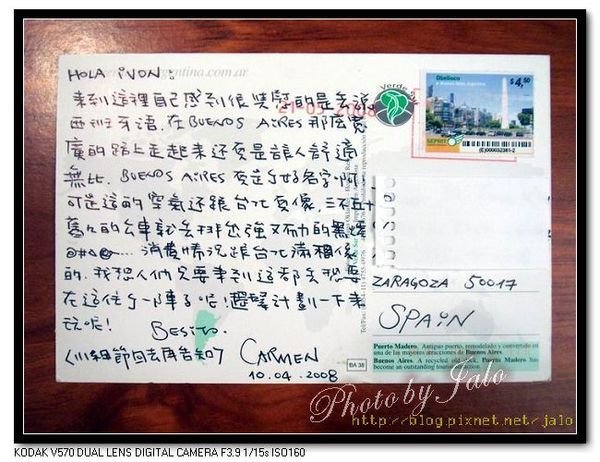 HOLA iVON:
來到這裡自己感到很興奮的是去說
西班牙語.在BUENOS AIRES那麼寬
廣的路上走起來還真是讓人舒適
無比. BUENOS AIRES 真是好名字啊
可是這的空氣還跟台北真像,三五十
舊的公車就去排出強又有力的黑煙
@#△@----. 消費情況跟台北滿相像
的.我想人們只要來到這都会想要
在這住一陣子吧!趕緊計劃一下來
玩吧!
BESitO.
(小細節回去再告知)
CARMEN
10.04.2008
argentina.com.ar
21-05-2008
Verde
Obelisco
Buenos Aires, Argentina
$4,50
(E)000032361-2
ZARAGOZA 50017
SPAiN
Puerto Madero. Antiguo puerto, remodelado y convertido en
una de las mayores atracciones de Buenos Aires.
Buenos Aires. A recycled old dock. Puerto Madero has
become an outstanding tourist attraction.
BA 38
Photo by Jalo
http://blog.pixnet.net/jalo
KODAK V570 DUAL LENS DIGITAL CAMERA F3.9 1/15s ISO160